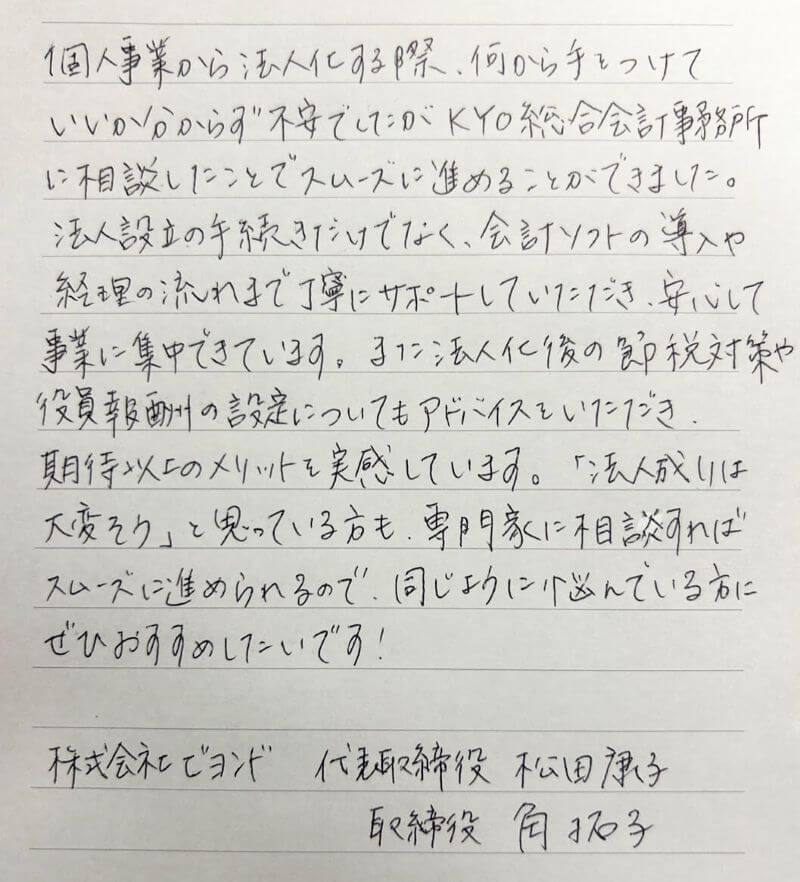 個人事業から法人化する際、何から手をつけて
いいか分からず不安でしたがKYO総合会計事務所
に相談したことでスムーズに進めることができました。
法人設立の手続きだけでなく、会計ソフトの導入や
経理の流れまで丁寧にサポートしていただき、安心して
事業に集中できています。また法人化後の節税対策や
役員報酬の設定についてもアドバイスをいただき、
期待以上のメリットを実感しています。「法人成りは
大変そう」と思っている方も、専門家に相談すれば
スムーズに進められるので、同じように悩んでいる方に
ぜひおすすめしたいです!
株式会社ビヨンド 代表取締役 松田康子
取締役 角拓子